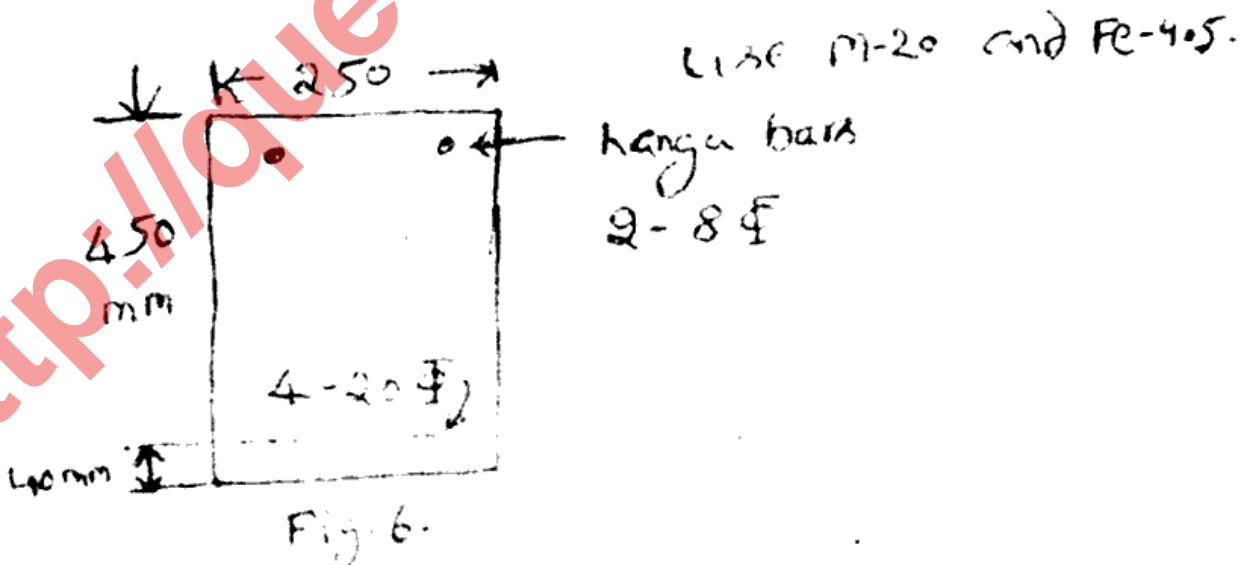 Use M-20 and Fe-415.
250
hanger bars
2-8 Φ
450
mm
4-20 Φ
40mm
Fig. 6.
ttp://que